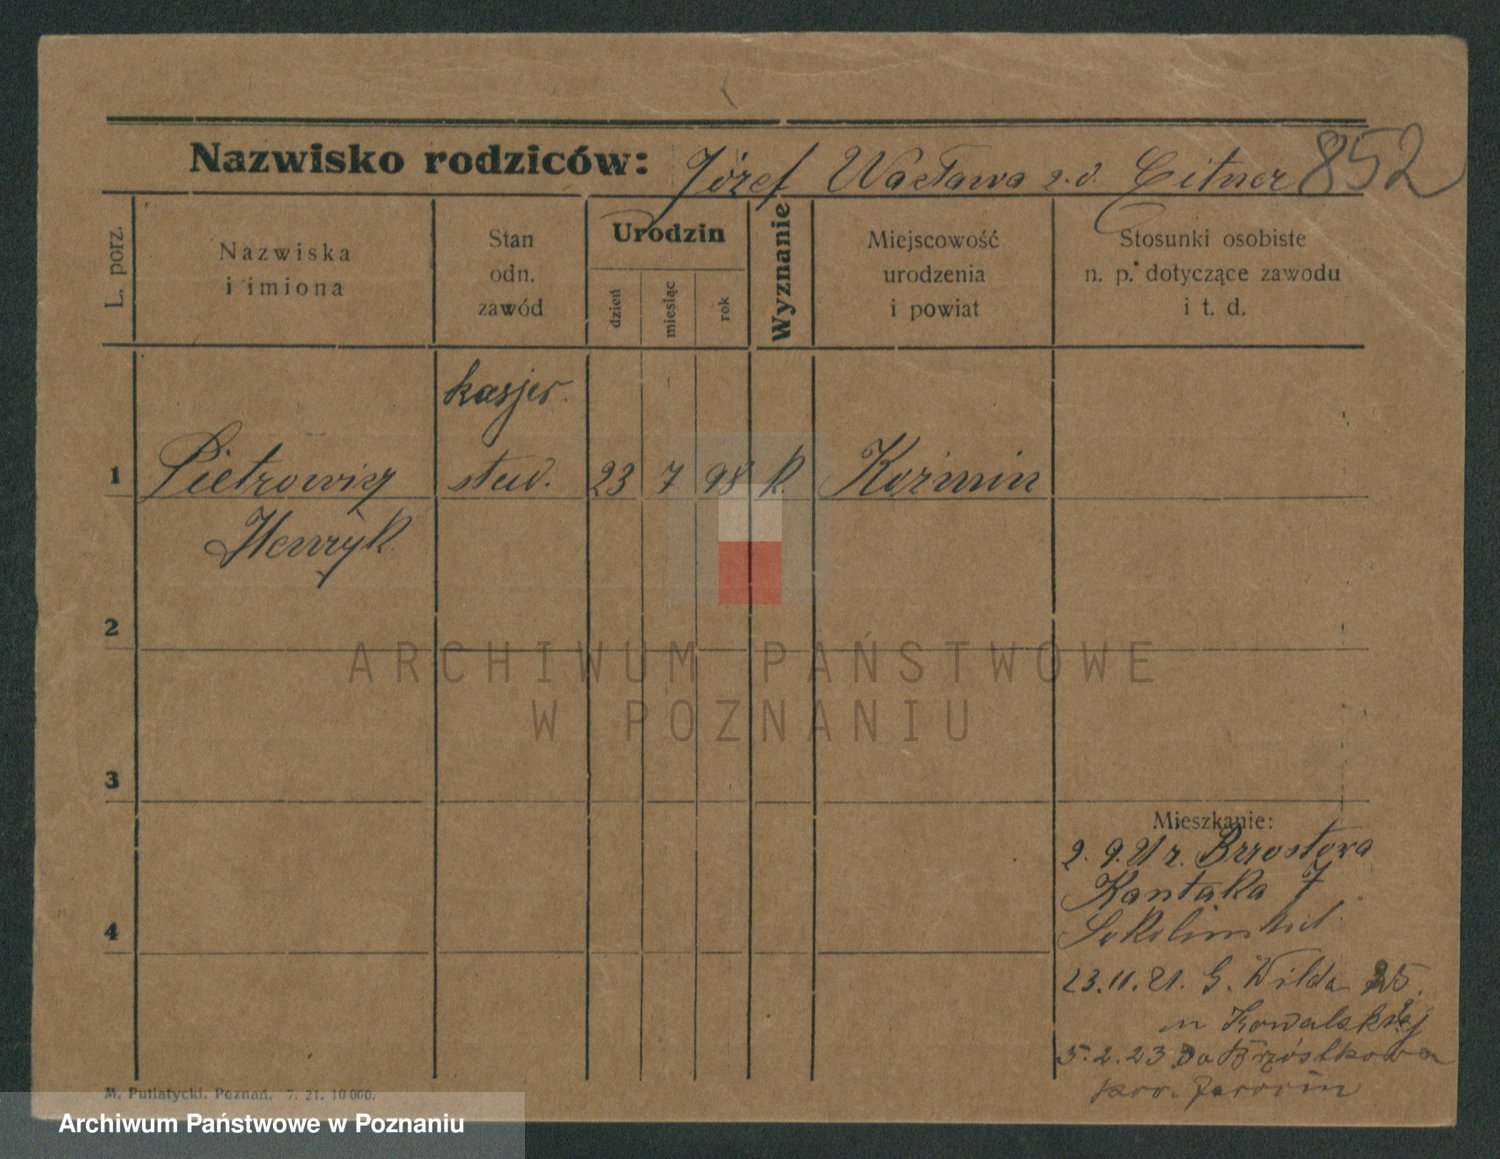 Nazwisko rodziców: Józef Wacława z.d. Citner 852
L. porz.
Nazwiska i imiona
Stan odn. zawód
Urodzin
dzień
miesiąc
rok
Wyznanie
Miejscowość urodzenia i powiat
Stosunki osobiste n. p. dotyczące zawodu i t. d.
kasjer.
1 Pietrowicz stud. 23 7 98 k. Koźmin
Henryk
2
ARCHIWUM PAŃSTWOWE
W POZNANIU
3
Mieszkanie:
2. 9. 21 z
Kantaka 7
4
23.11.21. G. Wilda 25.
u Kowalskiej
5.2.23 do Brzóstkowa
pow. Jarocin
M. Putiatycki. Poznań. 7. 21. 10 000.
Archiwum Państwowe w Poznaniu